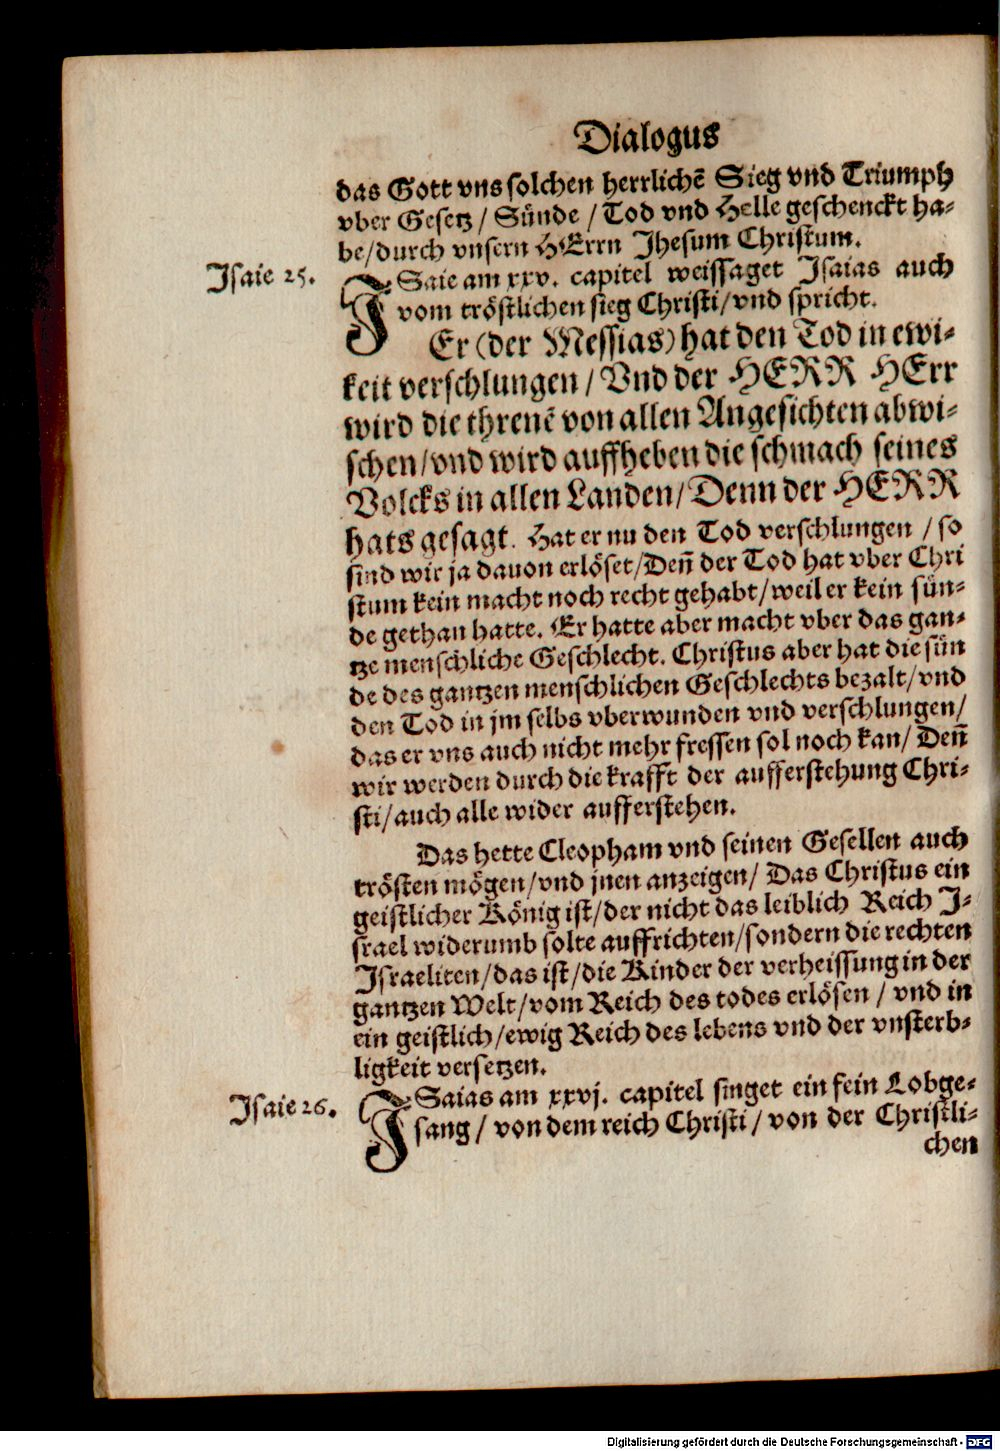 Dialogus
das Gott vns solchen herrlichē Sieg vnd Triumph
vber Gesetz / Sünde / Tod vnd Helle geschenckt ha-
be/durch vnsern HErrn Jhesum Christum.
Isaie 25.
ISaie am xxv. capitel weissaget Isaias auch
vom tröstlichen sieg Christi/vnd spricht.
Er (der Messias) hat den Tod in ewi-
keit verschlungen / Vnd der HERR HErr
wird die threnē von allen Angesichten abwi-
schen/vnd wird auffheben die schmach seines
Volcks in allen Landen/Denn der HERR
hats gesagt. Hat er nu den Tod verschlungen / so
sind wir ja dauon erlöset/Den̄ der Tod hat vber Chri
stum kein macht noch recht gehabt/weil er kein sün-
de gethan hatte. Er hatte aber macht vber das gan-
tze menschliche Geschlecht. Christus aber hat die sün
de des gantzen menschlichen Geschlechts bezalt/vnd
den Tod in jm selbs vberwunden vnd verschlungen/
das er vns auch nicht mehr fressen sol noch kan/ Den̄
wir werden durch die krafft der aufferstehung Chri-
sti/auch alle wider aufferstehen.
Das hette Cleopham vnd seinen Gesellen auch
trösten mögen/vnd jnen anzeigen/ Das Christus ein
geistlicher König ist/der nicht das leiblich Reich J-
srael widerumb solte auffrichten/sondern die rechten
Israeliten/das ist/die Kinder der verheissung in der
gantzen Welt/vom Reich des todes erlösen / vnd in
ein geistlich/ewig Reich des lebens vnd der vnsterb-
ligkeit versetzen.
Isaie 26.
ISaias am xxvj. capitel singet ein fein Lobge-
sang / von dem reich Christi / von der Christli-
chen
Digitalisierung gefördert durch die Deutsche Forschungsgemeinschaft - DFG